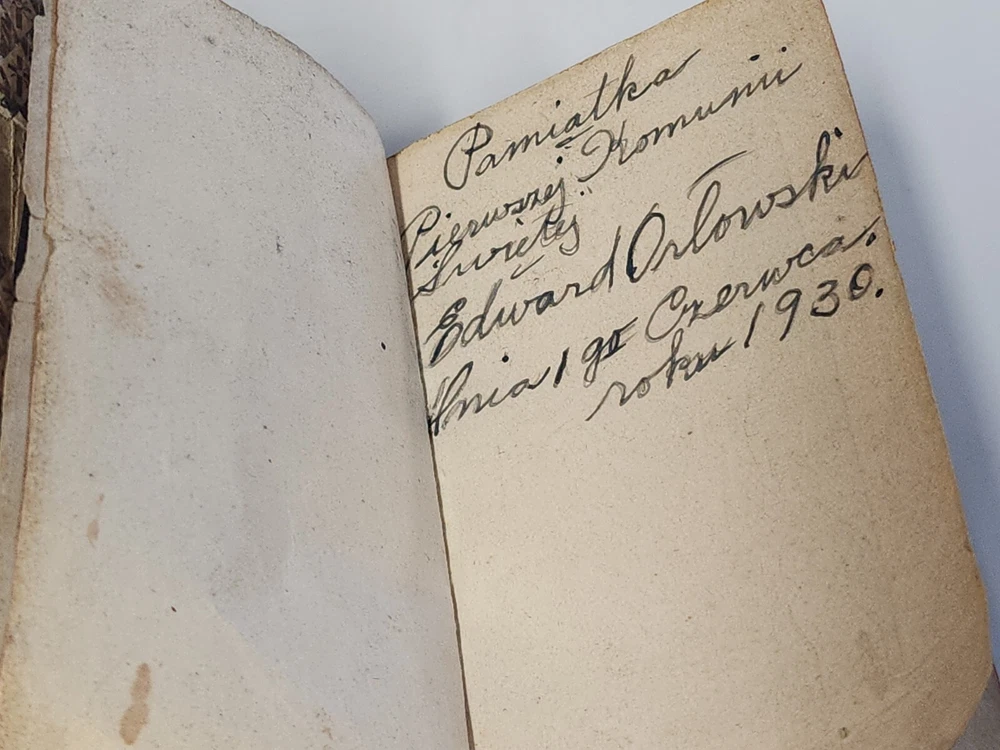 Pamiątka
Pierwszej Komunii
Świętej
Edward Orłowski
dnia 1go Czerwca.
roku 1930.